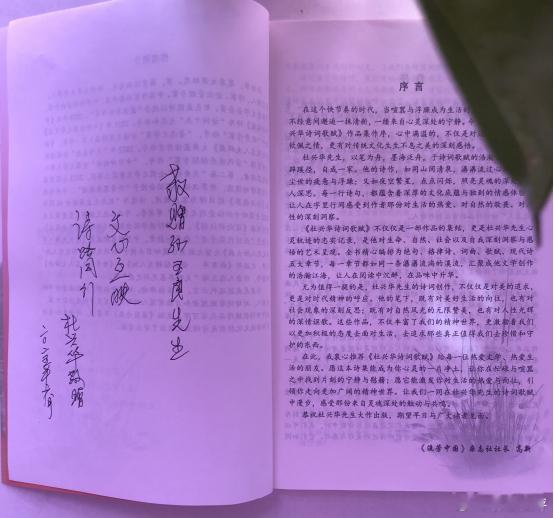 敬赠
先生
文心互映
诗路同行
杜兴华敬赠
序言
在这个快节奏的时代，当喧嚣与浮躁成为生活的
不经意间邂逅一抹清新，一缕来自心灵深处的宁静。今
兴华诗词歌赋》作品集作序，心中满溢的，不仅是对
钦佩之情，更有对传统文化生生不息之美的深刻感悟。
杜兴华先生，以笔为舟，墨海泛舟，于诗词歌赋的浩瀚
辟蹊径，自成一家。他的诗作，如同山间清泉，潺潺流过心
尘世的疲惫与浮躁；又如夜空繁星，点点闪烁，照亮灵魂的深
人深思。每一行诗句，都蕴含着深厚的文化底蕴与独到的情感体
让人在字里行间感受到作者那份对生活的热爱、对自然的敬畏、对
性的深刻洞察。
《杜兴华诗词歌赋》不仅仅是一部作品的集结，更是杜兴华先生心
灵轨迹的忠实记录，是他对生命、自然、社会以及自我深刻洞察与感
悟的艺术呈现。全书精心编排为绝句、格律诗、词曲、歌赋、现代诗
五大章节，每一章节都如同一条潺潺流淌的溪流，汇聚成他文学创作
的浩瀚江海，让人在阅读中沉醉，在品味中升华。
尤为值得一提的是，杜兴华先生的诗词创作，不仅仅是对美的追求，
更是对时代精神的呼应。他的笔下，既有对美好生活的向往，也有对
社会现象的深刻反思；既有对自然风光的无限赞美，也有对人性光辉
的深情讴歌。这些作品，不仅丰富了我们的精神世界，更激励着我们
以更加积极的态度去面对生活，去追求那些真正值得我们去珍惜和守
护的东西。
在此，我衷心推荐《杜兴华诗词歌赋》给每一位热爱文学、热爱生
活的朋友。愿这本诗集能成为你心灵的一片净土，让你在忙碌与喧嚣
之中找到片刻的宁静与慰藉；愿它能激发你对生活的热爱与向往，引
领你走向更加广阔的精神世界。让我们一同在杜兴华先生的诗词歌赋
中漫步，感受那份来自灵魂深处的触动与共鸣。
恭祝杜兴华先生大作出版，期望早日与广大读者见面。
《流芳中国》杂志社社长 高新